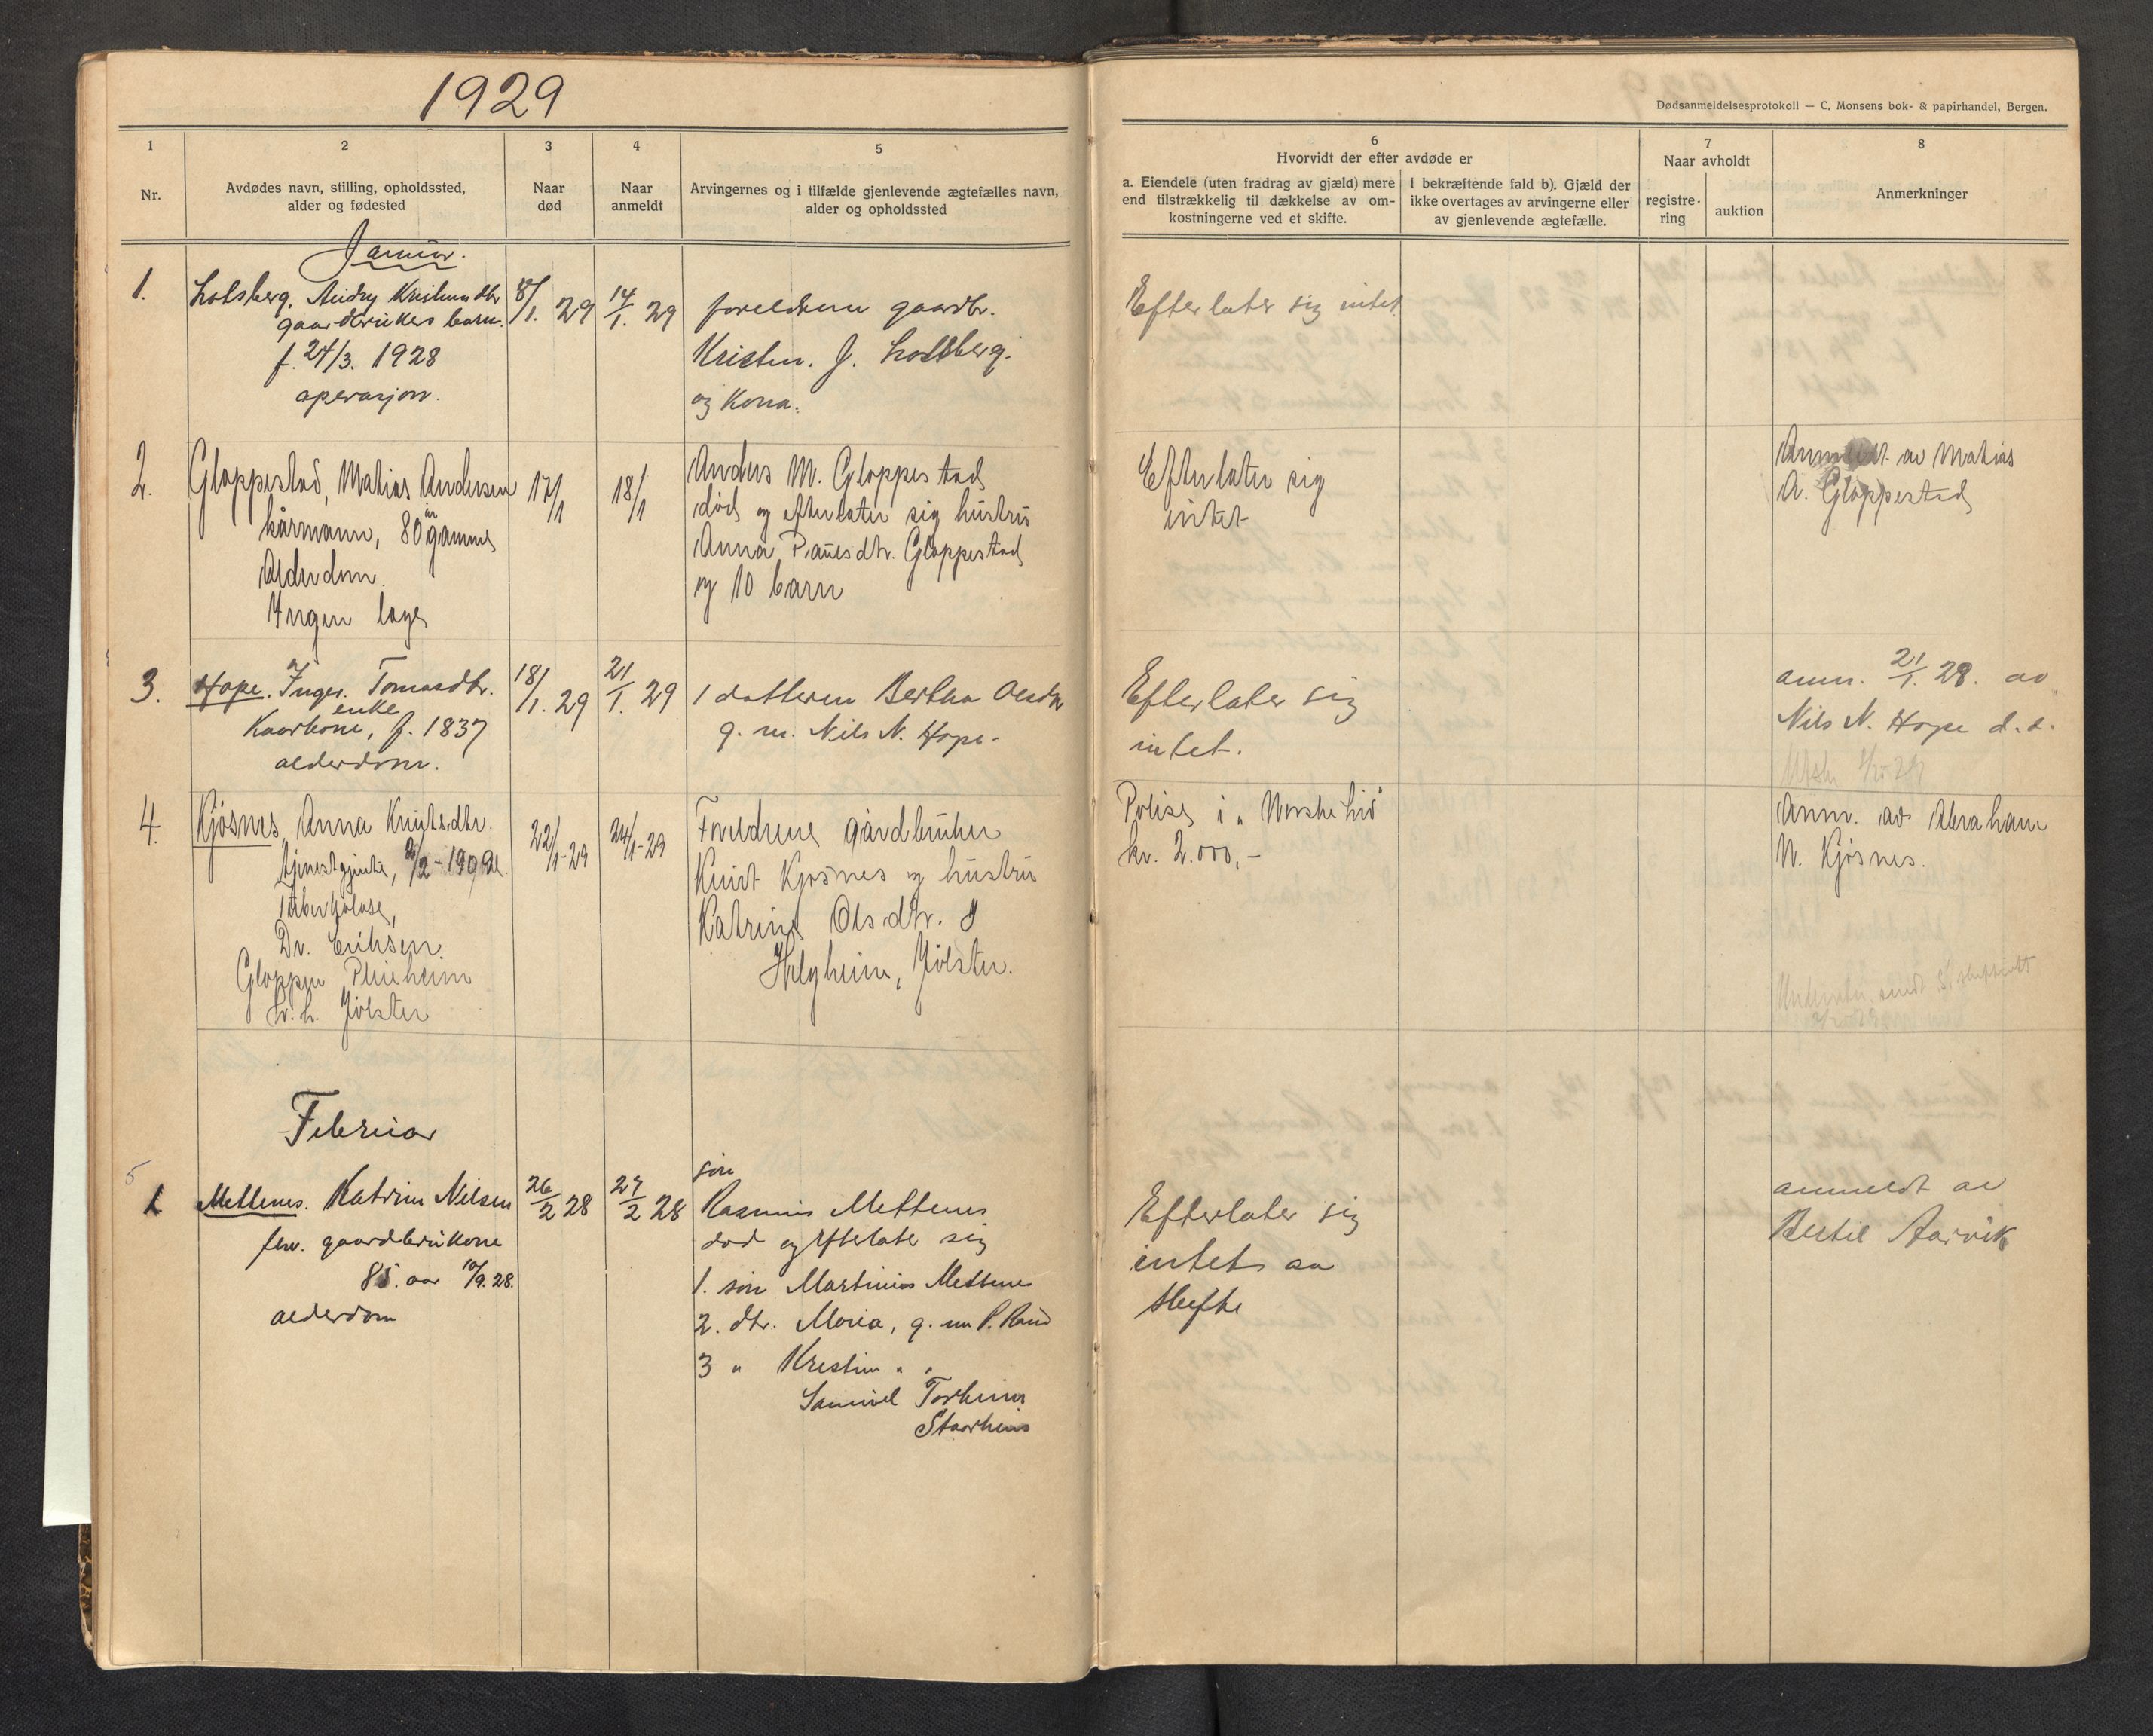 1929
Dødsanmeldelsesprotokoll — C. Monsens bok- & papirhandel, Bergen.
1
Nr.
2
Avdødes navn, stilling, opholdssted,
alder og fødested
3
Naar
død
4
Naar
anmeldt
5
Arvingernes og i tilfælde gjenlevende ægtefælles navn,
alder og opholdssted
6
Hvorvidt der efter avdøde er
a. Eiendele (uten fradrag av gjæld) mere
end tilstrækkelig til dækkelse av om-
kostningerne ved et skifte.
I bekræftende fald b). Gjæld der
ikke overtages av arvingerne eller
av gjenlevende ægtefælle.
7
Naar avholdt
registre-
ring
auktion
8
Anmerkninger
Januar.
1.
Lotsberg, Kristensdtr
gaardbrukers barn.
f. 24/3. 1928
operasjon.
8/1. 29
14/1. 29
foreldrene gaardbr.
Kristen. J. Lotsberg.
og Kona.
Efterlater sig intet
2.
Gloppestad, Matias Andersen
kårmann, 80 år gammel
Alderdom.
Ingen læge
17/1
18/1
Anders M. Gloppestad
død og efterlater sig hustru
Anna Paulsdtr. Gloppestad
og 10 barn
Efterlater sig
intet
Anmeldt av Matias
A. Gloppestad
3.
Hope. Inger. Tomasdtr.
enke
Kaarkone, f. 1837
alderdom.
18/1. 29
21/1. 29
1 datteren Bertha Olsdtr
g. m. Nils N. Hope.
Efterlater sig
intet.
anm. 21/1. 28. av
Nils N. Hope d. s.
4.
Kjøsnes, Anna Knutsdtr.
tjenestgjente, /2-1909
Tuberkulose,
Dr. Eriksen.
Gloppen Pleieheim
Jølster
22/1-29
24/1-29
Foreldrene gårdbruker
Knut Kjøsnes og hustru
Katrine Olsdtr.
Helgheim, Jølster.
Polise i "Norske Liv"
kr. 2.000,-
Anm. av Abraham
N. Kjøsnes.
Februar
5
1
Mettenes. Katrine Nilsen
fhv. gaardbrukone
85. aar /9. 28.
alderdom
26/2 28
27/2 28
søn
Rasmus Mettenes
død og efterlater sig
1. søn Martinus Mettenes
2. dtr. Maria, g. m P. Rand
3 " Kristine " "
Samuel
Staarheim
Efterlater sig
intet aa
skifte
anmeldt av
Bertil Aarvik